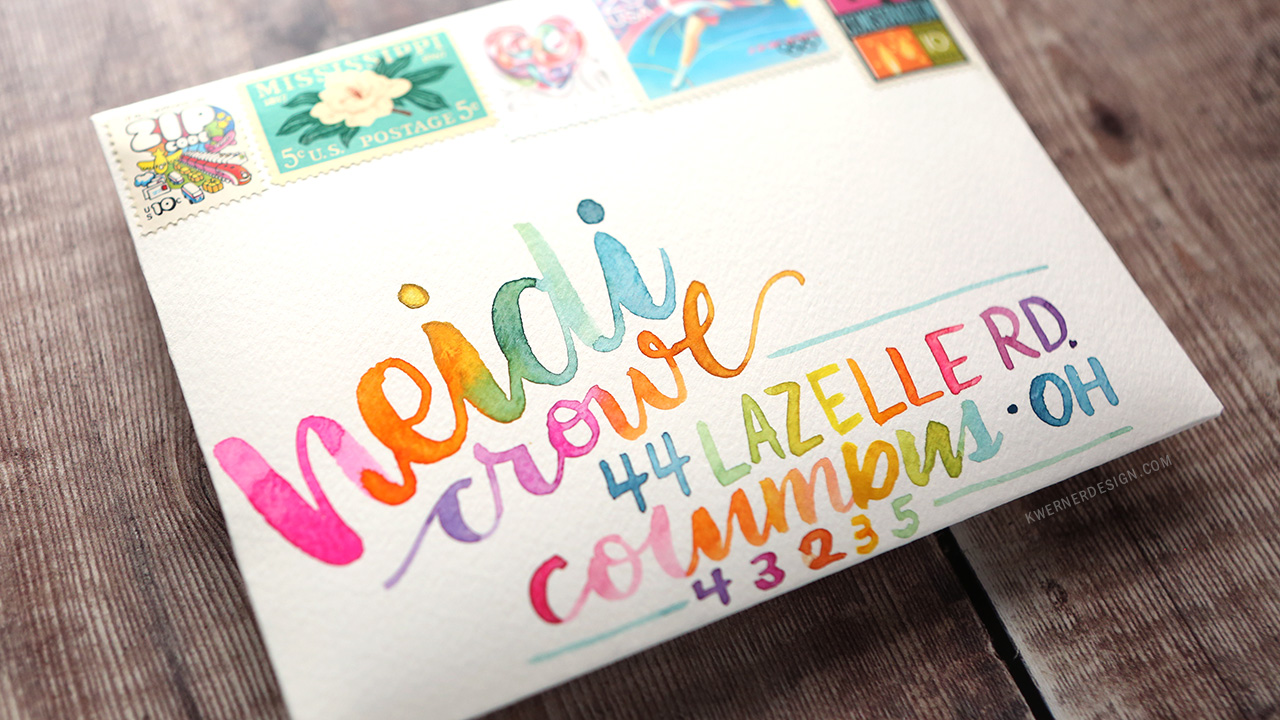 ZIP
CODE
US 10c
MISSISSIPPI
5c U.S. POSTAGE 5c
USA
10
neidi
crowe
44 LAZELLE RD.
columbus · OH
43235
KWERNERDESIGN.COM